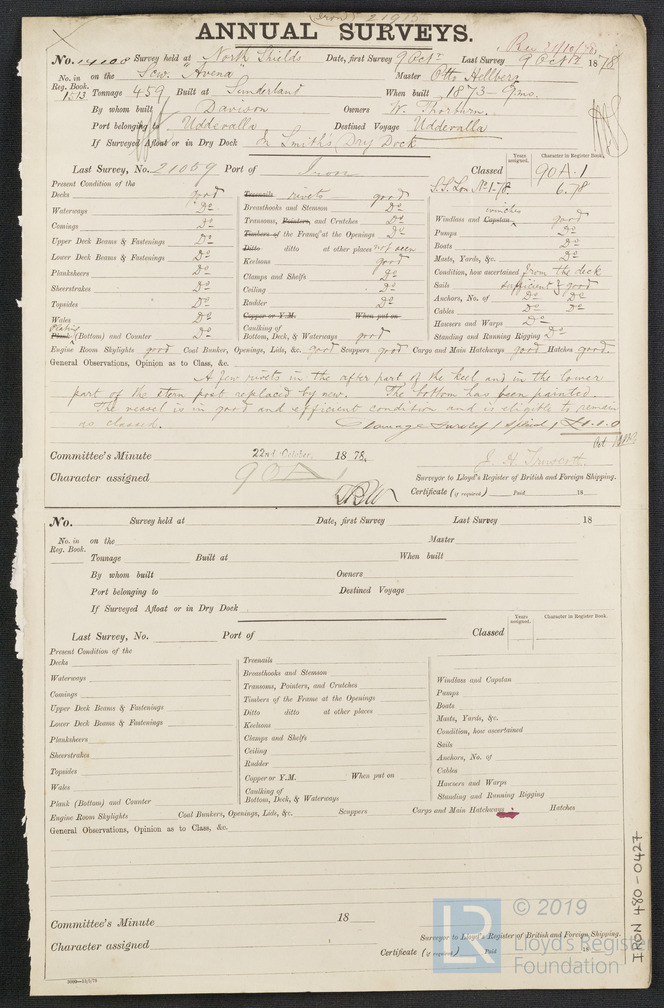 (Iron) 21915
ANNUAL SURVEYS.
Rec 21/10/78
No. Survey held at North Shields Date, first Survey 9 Octr Last Survey 9 Octr 1878
No. in Reg. Book. 1513 on the "Scw. Avena" Master Otto Hellberg
Tonnage 459 Built at Sunderland When built 1873-9mo.
By whom built Davison Owners W. Thorburn.
Port belonging to Uddevalla Destined Voyage Uddevalla
If Surveyed Afloat or in Dry Dock In Smith's Dry Dock
Last Survey, No. 21059 Port of Iron Classed
Years assigned. Character in Register Book.
90A.1
S.S. Lon No 1-78 6.78
Present Condition of the
Decks good
Waterways Do
Comings Do
Upper Deck Beams & Fastenings Do
Lower Deck Beams & Fastenings Do
Planksheers Do
Sheerstrakes Do
Topsides Do
Wales Do
Plank Plating (Bottom) and Counter Do
Treenails rivets good
Breasthooks and Stemson Do
Transoms, Pointers, and Crutches Do
Timbers of the Frame at the Openings Do
Ditto ditto at other places not seen
Keelsons good
Clamps and Shelfs Do
Ceiling Do
Rudder Do
Copper or Y.M. When put on
Caulking of Bottom, Deck, & Waterways good
Windlass and Capstan winches good
Pumps Do
Boats Do
Masts, Yards, &c. Do
Condition, how ascertained from the deck
Sails sufficient & good
Anchors, No. of Do Do
Cables Do Do
Hawsers and Warps Do
Standing and Running Rigging Do
Engine Room Skylights good Coal Bunker, Openings, Lids, &c. good Scuppers good Cargo and Main Hatchways good Hatches good.
General Observations, Opinion as to Class, &c.
A few rivets in the after part of the keel and in the lower
part of the stern post replaced by new. The bottom has been painted.
The vessel is in good and efficient condition and is eligible to remain
as classed. Damage Survey £1.1.0
Committee's Minute 22nd October 1878.
Character assigned 90A1
Surveyor to Lloyd's Register of British and Foreign Shipping.
Certificate (if required) Paid 18
No. Survey held at Date, first Survey Last Survey 18
No. in Reg. Book. on the Master
Tonnage Built at When built
By whom built Owners
Port belonging to Destined Voyage
If Surveyed Afloat or in Dry Dock
Last Survey, No. Port of Classed
Years assigned. Character in Register Book.
Present Condition of the
Decks
Waterways
Comings
Upper Deck Beams & Fastenings
Lower Deck Beams & Fastenings
Planksheers
Sheerstrakes
Topsides
Wales
Plank (Bottom) and Counter
Treenails
Breasthooks and Stemson
Transoms, Pointers, and Crutches
Timbers of the Frame at the Openings
Ditto ditto at other places
Keelsons
Clamps and Shelfs
Ceiling
Rudder
Copper or Y.M. When put on
Caulking of Bottom, Deck, & Waterways
Windlass and Capstan
Pumps
Boats
Masts, Yards, &c.
Condition, how ascertained
Sails
Anchors, No. of
Cables
Hawsers and Warps
Standing and Running Rigging
Engine Room Skylights Coal Bunkers, Openings, Lids, &c. Scuppers Cargo and Main Hatchways Hatches
General Observations, Opinion as to Class, &c.
Committee's Minute 18
Character assigned
Surveyor to Lloyd's Register of British and Foreign Shipping.
Certificate (if required) Paid 18
IRON 480-0427
LR © 2019
Lloyd's Register
Foundation